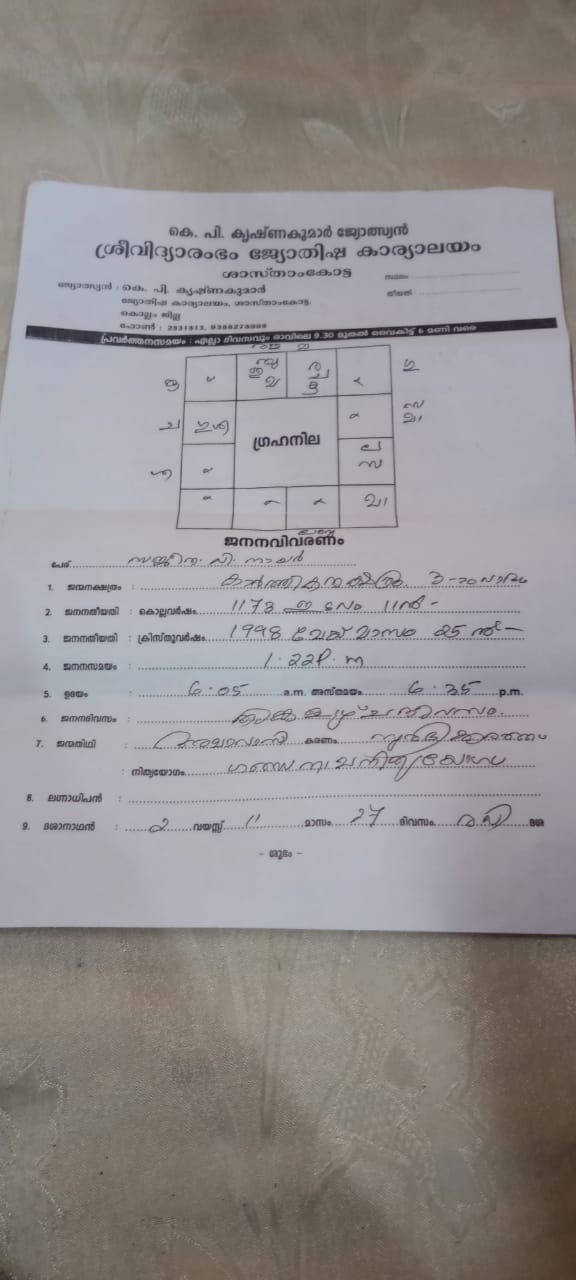 കെ. പി. കൃഷ്ണകുമാർ ജ്യോത്സ്യൻ
ശ്രീവിദ്യാരംഭം ജ്യോതിഷ കാര്യാലയം
ശാസ്താംകോട്ട
സ്ഥലം
ജ്യോത്സ്യൻ : കെ. പി. കൃഷ്ണകുമാർ
തീയതി
ജ്യോതിഷ കാര്യാലയം, ശാസ്താംകോട്ട,
കൊല്ലം ജില്ല
ഫോൺ : 2831813,
പ്രവർത്തനസമയം : എല്ലാ ദിവസവും രാവിലെ 9.30 മുതൽ വൈകിട്ട് 6 മണി വരെ
ഗ്രഹനില
ല
സ
മാ
ജനനവിവരണം
പേര് പി. നായർ
1. ജന്മനക്ഷത്രം : കാർത്തിക നക്ഷത്രം 3-ാം പാദം
2. ജനനതീയതി : കൊല്ലവർഷം 1173 ഇടവം 11ന്
3. ജനനതീയതി : ക്രിസ്തുവർഷം 1998 മേയ് മാസം 25 ന്
4. ജനനസമയം : 1.22 P.m
5. ഉദയം : 6:05 a.m. അസ്തമയം 6:35 p.m.
6. ജനനദിവസം : തിങ്കളാഴ്ച ദിവസം.
7. ജന്മതിഥി : അമാവാസി കരണം
: നിത്യയോഗം
8. ലഗ്നാധിപൻ :
9. ദശാനാഥൻ : 2 വയസ്സ് 11 മാസം 27 ദിവസം രവി ദശ
- ശുഭം -